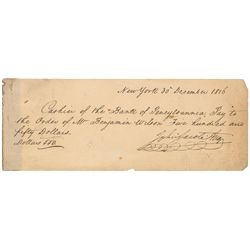 New York 30 December 1816
Cashier of the Bank of Pennsylvania; Pay to
the Order of Mr Benjamin Wilson hundred and
fifty Dollars.
Dollars